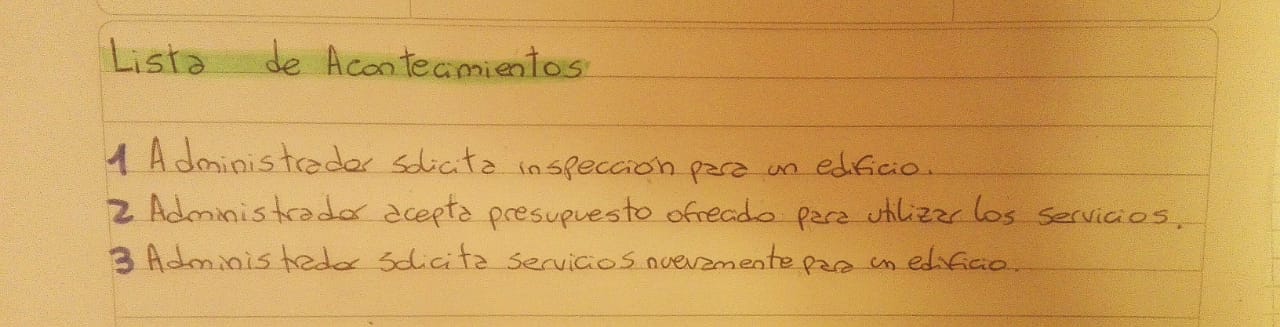 Lista de Acontecimientos
1 Administrador solicita inspección para un edificio.
2 Administrador acepta presupuesto ofrecido para utilizar los servicios.
3 Administrador solicita servicios nuevamente para un edificio.